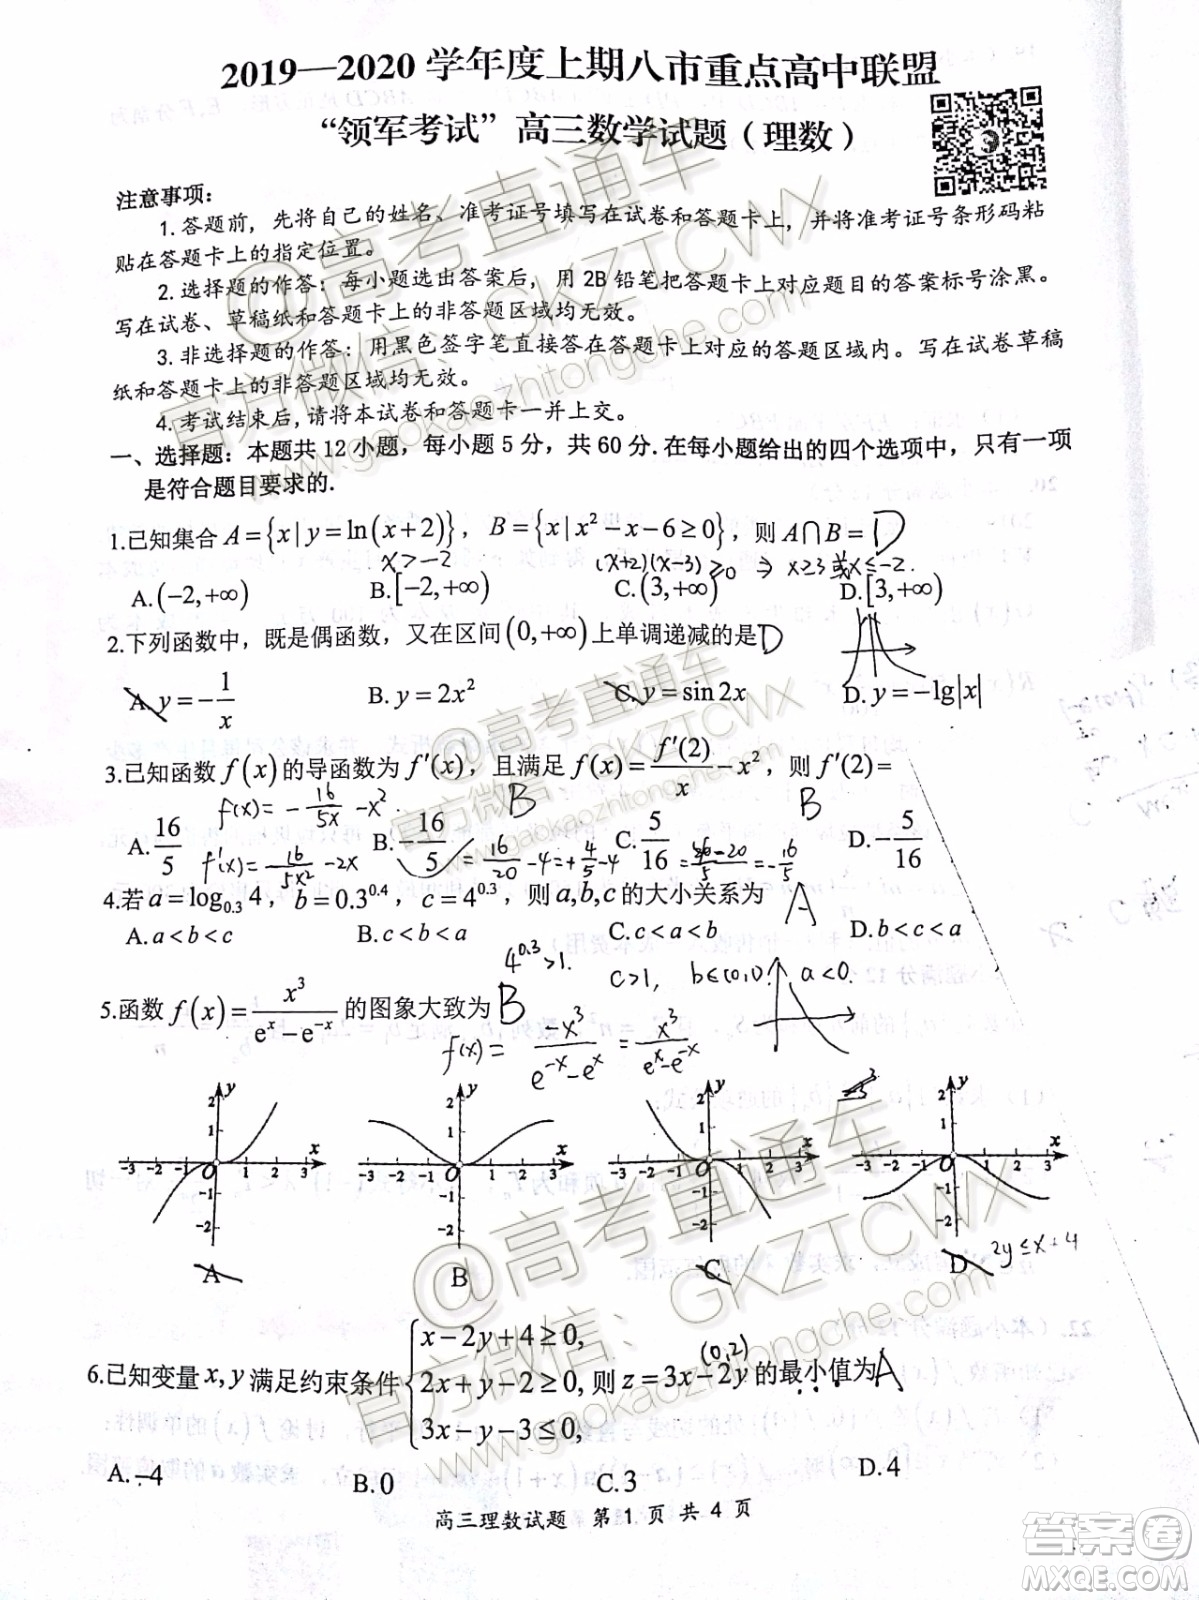 2019—2020 学年度上期八市重点高中联盟
“领军考试”高三数学试题（理数）
注意事项：
1.答题前，先将自己的姓名、准考证号填写在试卷和答题卡上，并将准考证号条形码粘
贴在答题卡上的指定位置。
2.选择题的作答：每小题选出答案后，用 2B 铅笔把答题卡上对应题目的答案标号涂黑。
写在试卷、草稿纸和答题卡上的非答题区域均无效。
3.非选择题的作答：用黑色签字笔直接答在答题卡上对应的答题区域内。写在试卷草稿
纸和答题卡上的非答题区域均无效。
4.考试结束后,请将本试卷和答题卡一并上交。
一、选择题：本题共 12 小题，每小题 5 分，共 60 分.在每小题给出的四个选项中，只有一项
是符合题目要求的.
1.已知集合 A={x|y=ln(x+2)}，B={x|x²-x-6≥0}，则 A∩B= D
x>-2 (x+2)(x-3)≥0 ⇒ x≥3 或 x≤-2.
A.(-2,+∞) B.[-2,+∞) C.(3,+∞) D.[3,+∞)
2.下列函数中，既是偶函数，又在区间(0,+∞)上单调递减的是 D
A. y=-1/x B. y=2x² C. y=sin2x D. y=-lg|x|
3.已知函数 f(x) 的导函数为 f′(x)，且满足 f(x)=f′(2)/x-x²，则 f′(2)=
f(x)=-16/5x-x² B B
A. 16/5 B. -16/5 C. 5/16 D. -5/16
f′(x)=-16/5x²-2x =16/20-4=+4/5-4
4.若 a=log₀.₃4，b=0.3^0.4，c=4^0.3，则 a,b,c 的大小关系为 A
A. a<b<c B. c<b<a C. c<a<b D. b<c<a
4^0.3>1. c>1, b∈(0,1) a<0.
5.函数 f(x)=x³/(eˣ-e⁻ˣ) 的图象大致为 B
f(x)=-x³/(e⁻ˣ-eˣ)=x³/(eˣ-e⁻ˣ)
y 2 1 -3 -2 -1 O 1 2 3 x -1 -2
y 2 1 -3 -2 -1 O 1 2 3 x -1 -2
y 2 1 -3 -2 -1 O 1 2 3 x -1 -2
y 2 1 -3 -2 -1 O 1 2 3 x -1 -2
A B C D
2y≤x+4
6.已知变量 x,y 满足约束条件 {x-2y+4≥0, 2x+y-2≥0, 3x-y-3≤0, 则 z=3x-2y 的最小值为 A
(0,2)
A.-4 B.0 C.3 D.4
高三理数试题 第 1 页 共 4 页
@高考直通车
官方微信：GKZTCWX
www.gaokaozhitongche.com
@高考直通车
官方微信：GKZTCWX
www.gaokaozhitongche.com
@高考直通车
官方微信：GKZTCWX
www.gaokaozhitongche.com
答案卷
MXQE.COM